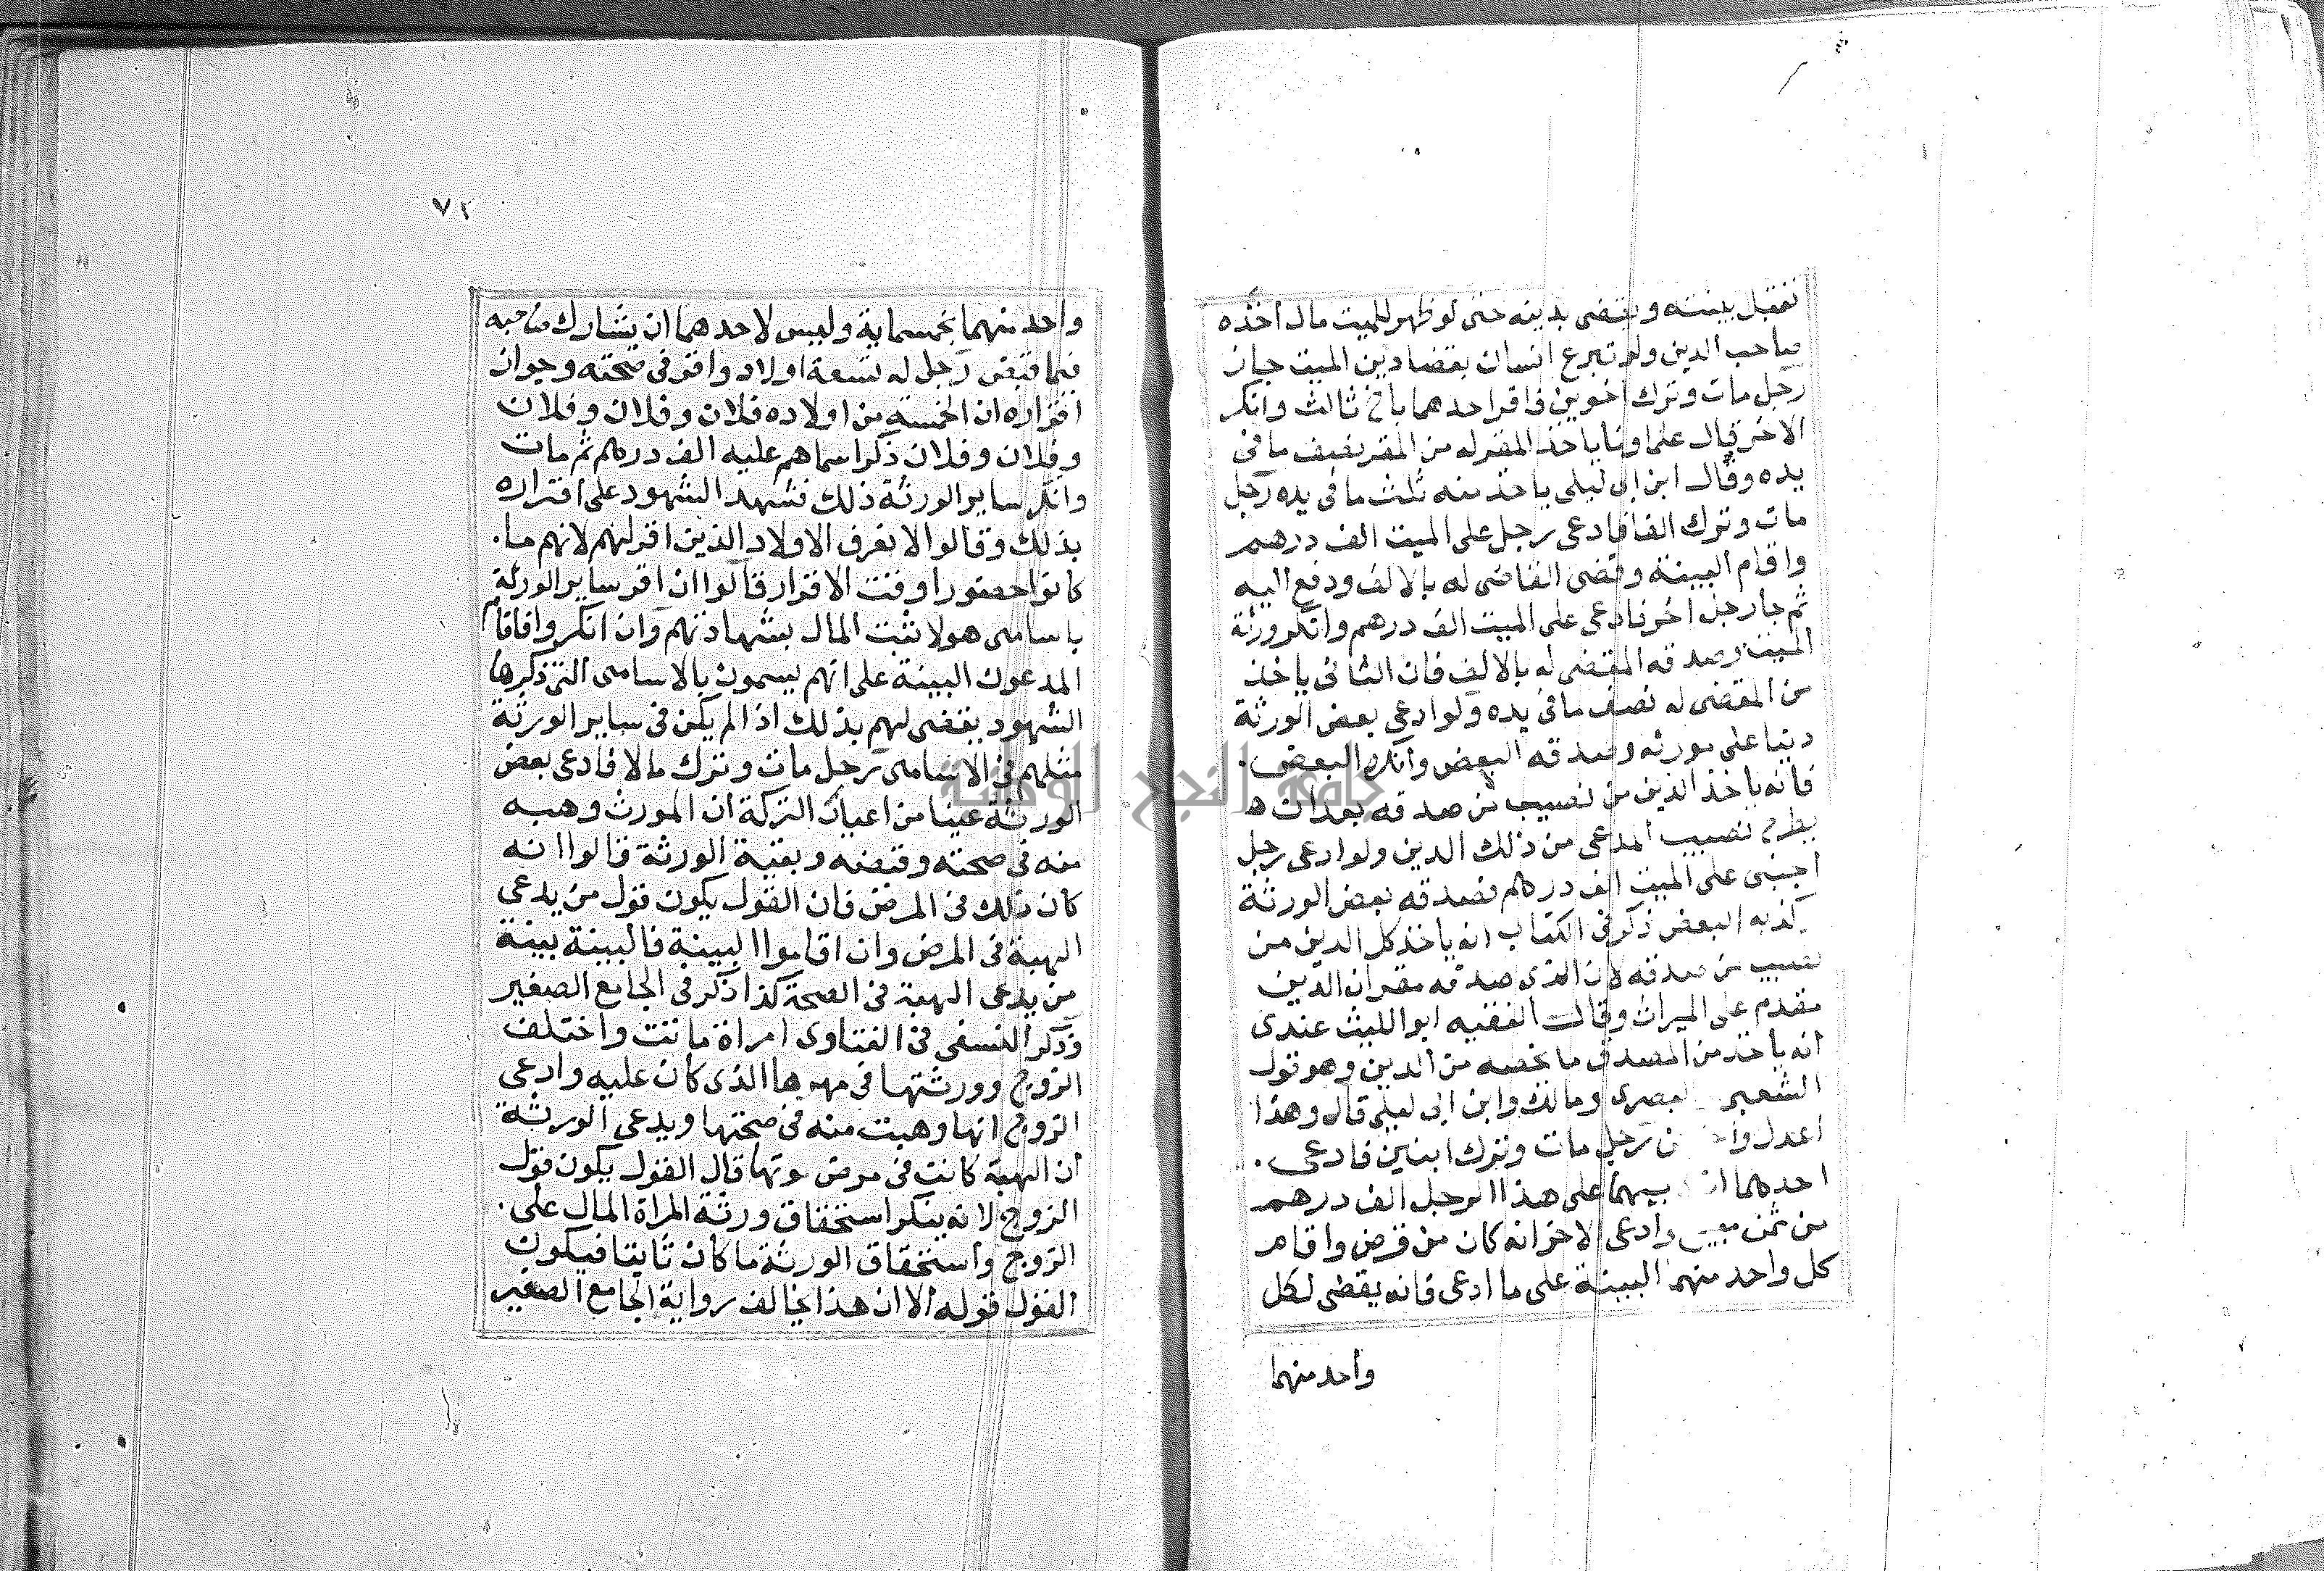 فتقبل بينته ويقضى بدينه حتى لو ظهر للميت مال أخذه
صاحب الدين ولو تبرع انسان بقضا دين الميت جاز
رجل مات وترك اخوين فاقر احدهما باخ ثالث وانكر
الاخر قال علماونا ياخذ المقر له من المقر نصف ما فى
يده وقال ابن ابى ليلى ياخذ منه ثلث ما فى يده رجل
مات وترك الفا فادعى رجل على الميت الف درهم
واقام البينة وقضى القاضى له بالالف ودفع اليه
ثم جا رجل اخر فادعى على الميت الف درهم وانكر ورثة
الميت وصدقه المقضى له بالالف فان الثانى ياخذ
من المقضى له نصف ما فى يده ولو ادعى بعض الورثة
دينا على مورثه وصدقه البعض وانكره البعض.
فانه ياخذ الدين من نصيب من صدقه بعد ان
يطرح نصيب المدعى من ذلك الدين ولو ادعى رجل
اجنبى على الميت الف درهم فصدقه بعض الورثة
كذبه البعض ذكر فى الكتاب انه ياخذ كل الدين من
نصيب من صدقه لان الذى صدقه مقران الدين
مقدم على الميراث وقال الفقيه ابو الليث عندى
انه ياخذ من المصدق ما يخصه من الدين وهو قول
الشعبى البصرى ومالك وابن ابى ليلى قال وهذا
اعدل رجل مات وترك ابنين فادعى.
احدهما على هذا الرجل الف درهم
من ثمن مبيع وادعى الاخر انه كان من قرض واقام
كل واحد منهما البينة على ما ادعى فانه يقضى لكل
واحد منهما
٧٢
واحد منهما بخمسماية وليس لاحدهما ان يشارك صاحبه
فيما قبض رجل له تسعة اولاد واقر فى صحته وجواز
اقراره ان لخمسة من اولاده فلان وفلان وفلان
وفلان وفلان ذكر اسماهم عليه الف درهم ثم مات
وانكر ساير الورثة ذلك فشهد الشهود على اقراره
بذلك وقالوا لا نعرف الاولاد الذين اقر لهم لانهم ما.
كانوا حضورا وقت الاقرار قالوا ان اقر ساير الورثة
باسامى هولا تثبت المال بشهادتهم وان انكروا فاقام
المدعون البينة على انهم يسمون بالاسامى التى ذكرها
الشهود يقضى لهم بذلك اذا لم يكن فى ساير الورثة
مثلهم فى الاسامى رجل مات وترك مالا فادعى بعض
الورثة عينا من اعيان التركة ان المورث وهبه
منه فى صحته وقبضه وبقية الورثة قالوا انه
كان ذلك فى المرض فان القول يكون قول من يدعى
الهبة فى المرض وان اقاموا البينة فالبينة بينة
من يدعى الهبة فى الصحة كذا ذكر فى الجامع الصغير
وذكر النسفى فى الفتاوى امراة ماتت واختلف
الزوج وورثتها فى مهرها الذى كان عليه وادعى
الزوج انها وهبت منه فى صحتها ويدعى الورثة
ان الهبة كانت فى مرض موتها قال القول يكون قول
الزوج لانه ينكر استحقاق ورثة المراة المال على.
الزوج واستحقاق الورثة ما كان ثابتا فيكون
القول قوله الا ان هذا يخالف رواية الجامع الصغير